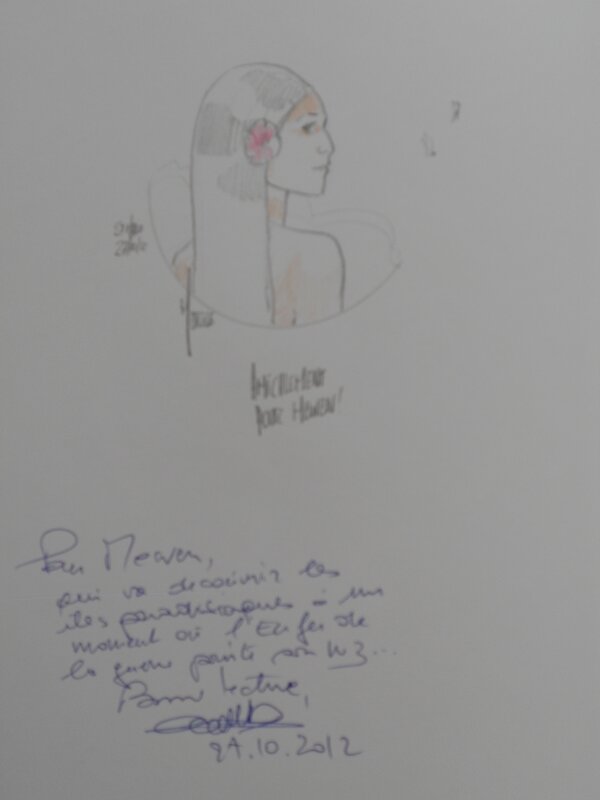 Amicalement
pour Merwen!
Pour Merwen,
qui va découvrir les
îles paradisiaques à un
moment où l'Enfer de
la guerre pointe son nez...
Bonne lecture,
27.10.2012